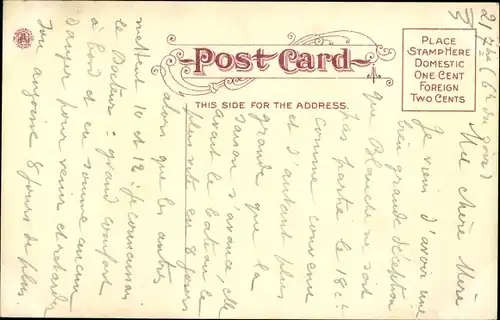 POST CARD
THIS SIDE FOR THE ADDRESS.
PLACE
STAMP HERE
DOMESTIC
ONE CENT
FOREIGN
TWO CENTS
Ma chère Mère
Je viens d'avoir une
bien grande déception
que Blanche ne soit
pas partie le 18 ct
comme convenu
et d'autant plus
grande que la
saison s'avance, elle
avant le bateau le
plus vite en 8 jours
alors que les autres
mettent 10 et 12. je connaissais
le Bateau: grand confort
à bord et en somme aucun
danger pour venir et retarder
son angoisse 8 jours de plus.